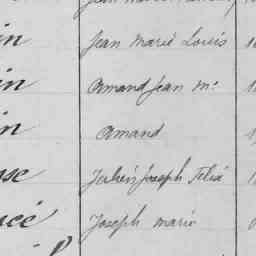 in Jean Marie Louis
in Amand Jean Me
in Amand
se Julien Joseph Félix
cé Joseph Marie